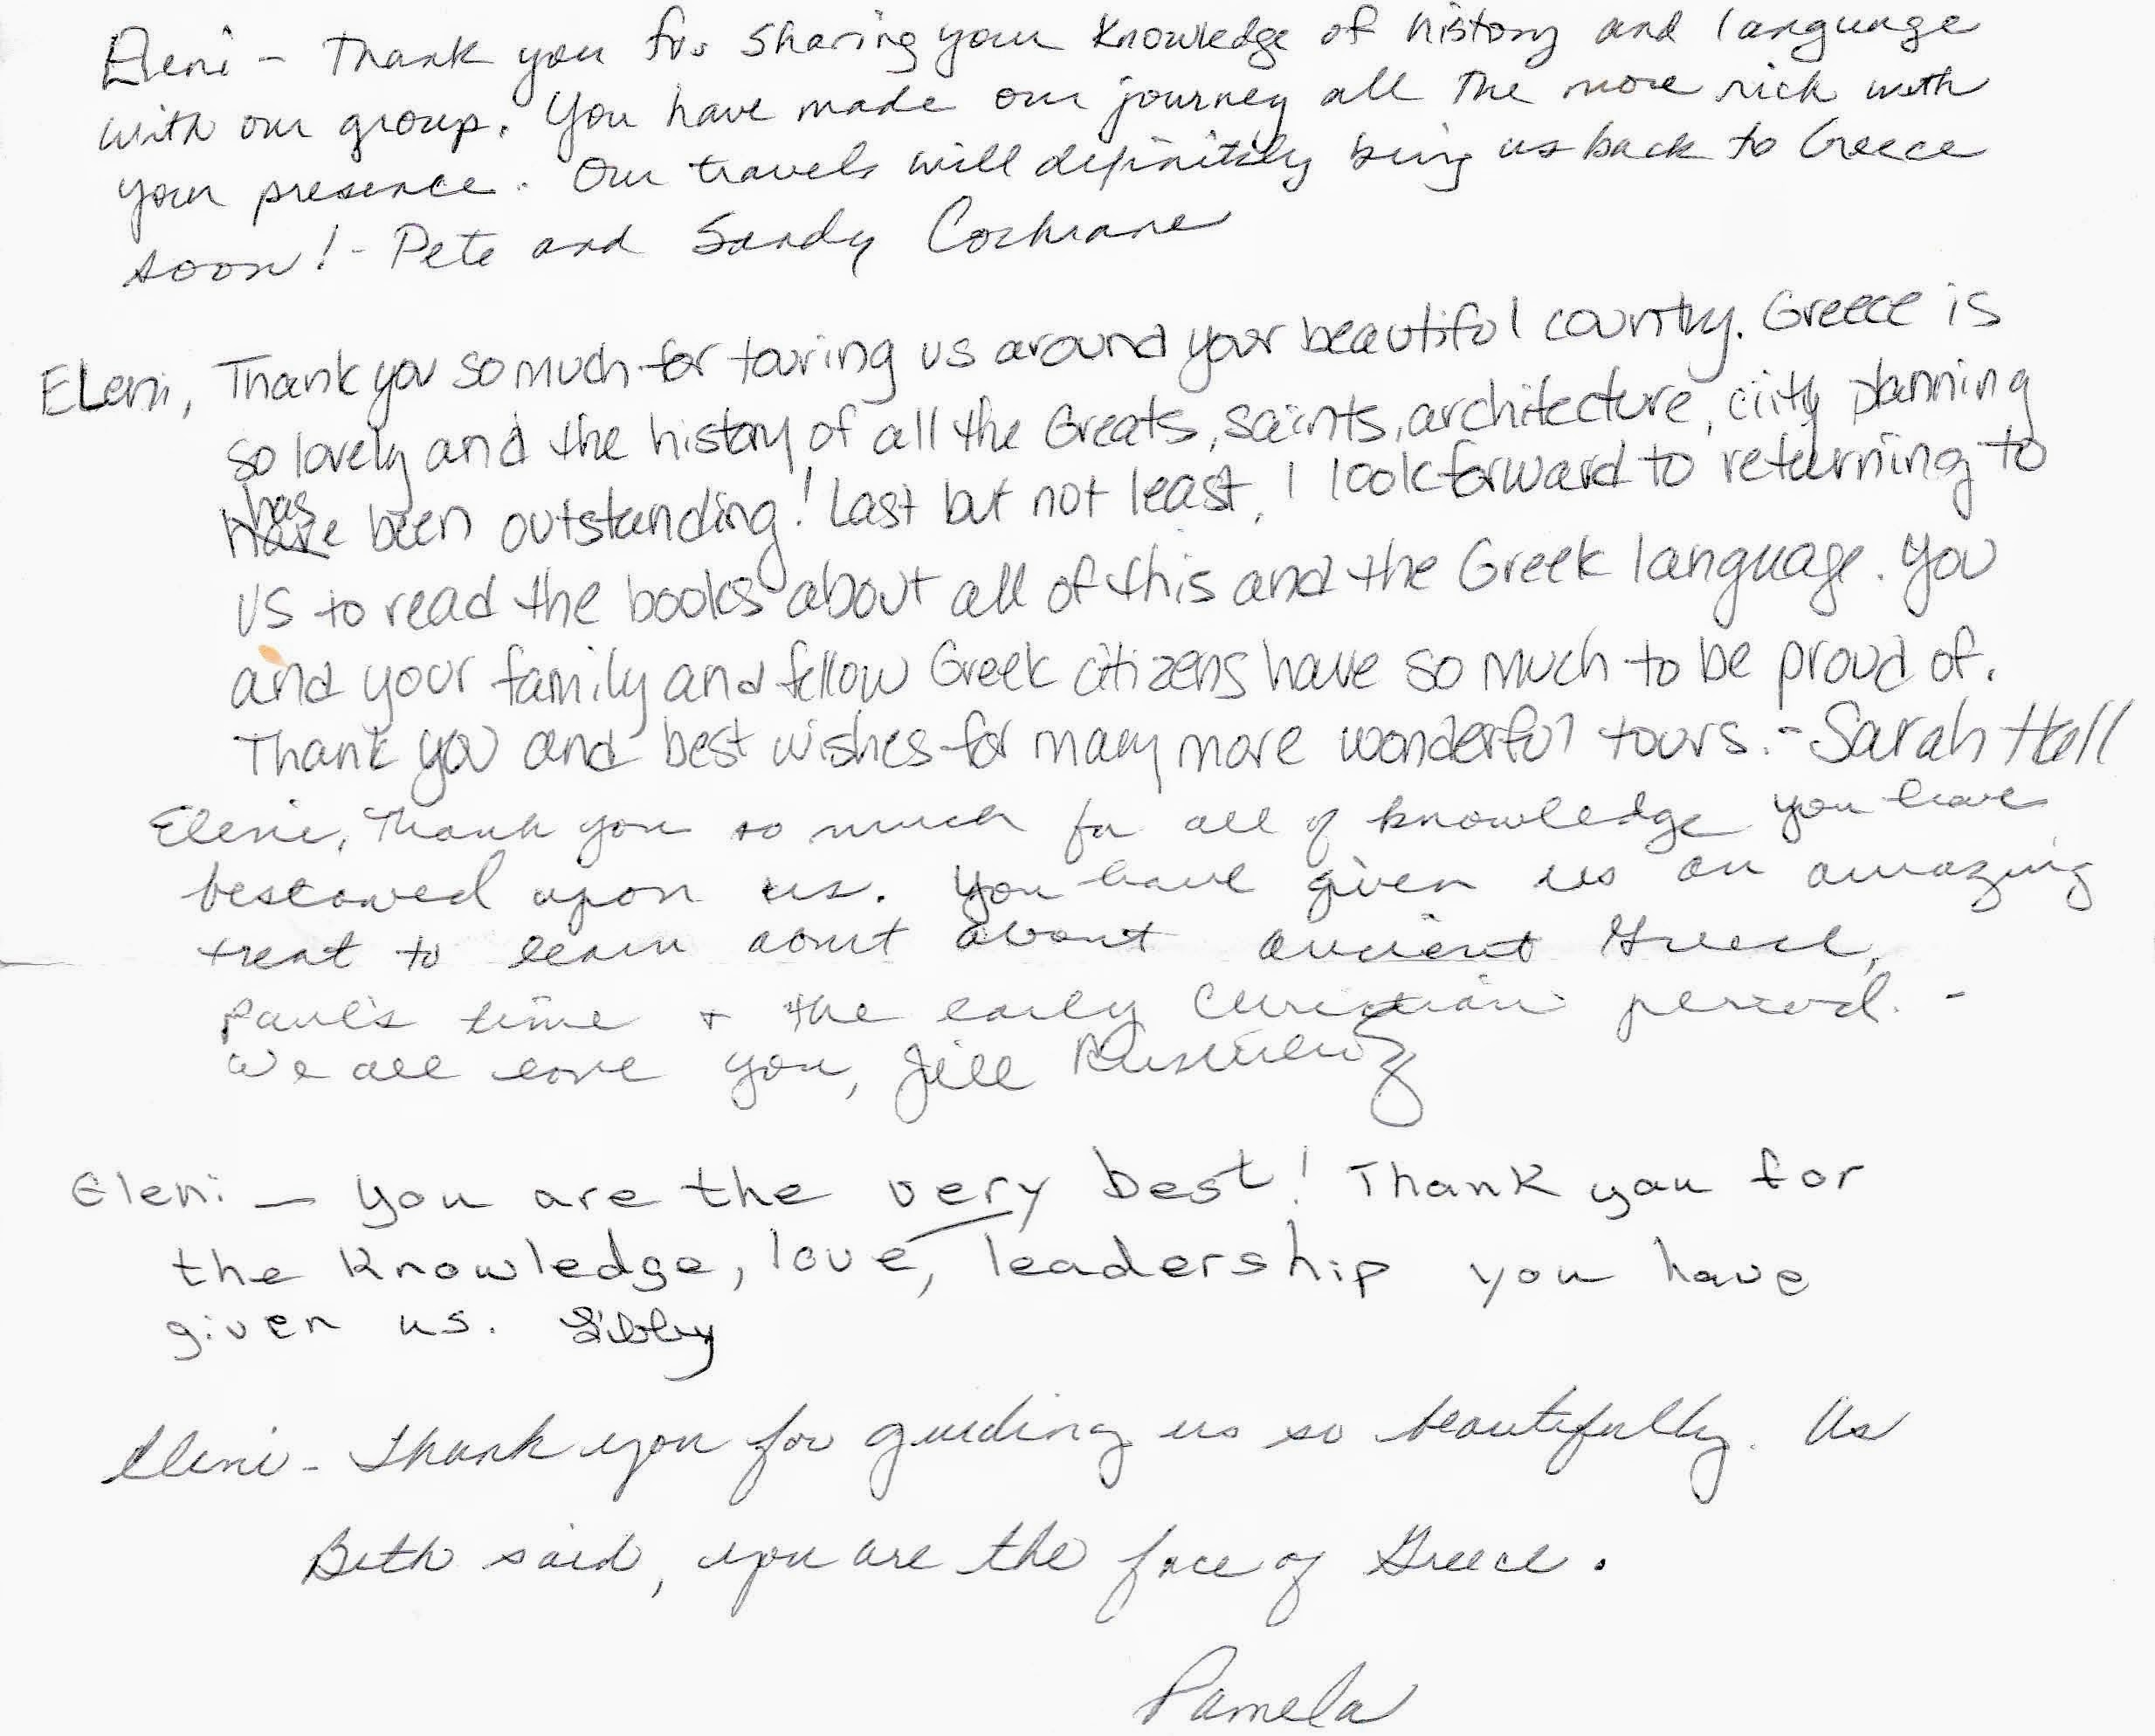 Eleni - Thank you for sharing your knowledge of history and language
with our group. You have made our journey all the more rich with
your presence. Our travels will definitely bring us back to Greece
soon! - Pete and Sandy Cochrane
Eleni, Thank you so much for touring us around your beautiful country. Greece is
so lovely and the history of all the Greats, saints, architecture, ciity planning
has
have been outstanding! Last but not least, I look forward to returning to
US to read the books about all of this and the Greek language. You
and your family and fellow Greek citizens have so much to be proud of.
Thank you and best wishes for many more wonderful tours. - Sarah Hall
Eleni, Thank you so much for all of knowledge you have
bestowed upon us. You have given us an amazing
treat to learn about about ancient Greece,
Paul's time + the early Christian period. -
We all love you, Jill
Eleni — You are the very best! Thank you for
the knowledge, love, leadership you have
given us. Libby
Eleni - Thank you for guiding us so beautifully. As
Beth said, you are the face of Greece.
Pamela